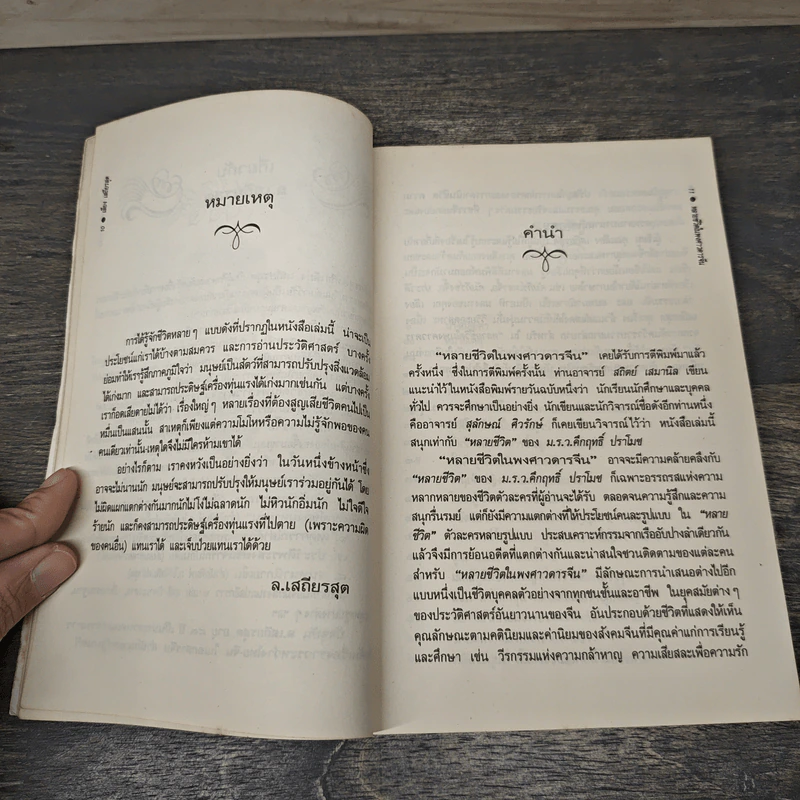 ๑๐ ● เสถียร เสถียรสุต
หมายเหตุ
การได้รู้จักชีวิตหลาย ๆ แบบดังที่ปรากฏในหนังสือเล่มนี้ น่าจะเป็น
ประโยชน์แก่เราได้บ้างตามสมควร และการอ่านประวัติศาสตร์ บางครั้ง
ย่อมทำให้เรารู้สึกภาคภูมิใจว่า มนุษย์เป็นสัตว์ที่สามารถปรับปรุงสิ่งแวดล้อม
ได้เก่งมาก และสามารถประดิษฐ์เครื่องทุ่นแรงได้เก่งมากเช่นกัน แต่บางครั้ง
เราก็อดเสียดายไม่ได้ว่า เรื่องใหญ่ๆ หลายเรื่องที่ต้องสูญเสียชีวิตคนไปเป็น
หมื่นเป็นแสนนั้น สาเหตุก็เพียงแต่ความโมโหหรือความไม่รู้จักพอของคน
คนเดียวเท่านั้น เหตุใดจึงไม่มีใครห้ามเขาได้
อย่างไรก็ตาม เราคงหวังเป็นอย่างยิ่งว่า ในวันหนึ่งข้างหน้าซึ่ง
อาจจะไม่นานนัก มนุษย์จะสามารถปรับปรุงให้มนุษย์เราร่วมอยู่กันได้ โดย
ไม่ผิดแผกแตกต่างกันมากนัก ไม่โง่ไม่ฉลาดนัก ไม่หิวนักอิ่มนัก ไม่ใจดีใจ
ร้ายนัก และก็คงสามารถประดิษฐ์เครื่องทุ่นแรงที่ไปตาย (เพราะความผิด
ของคนอื่น) แทนเราได้ และเจ็บป่วยแทนเราได้ด้วย
ล.เสถียรสุต
๑๑ ● หลายชีวิตในพงศาวดารจีน
คำนำ
"หลายชีวิตในพงศาวดารจีน" เคยได้รับการตีพิมพ์มาแล้ว
ครั้งหนึ่ง ซึ่งในการตีพิมพ์ครั้งนั้น ท่านอาจารย์ สถิตย์ เสมานิล เขียน
แนะนำไว้ในหนังสือพิมพ์รายวันฉบับหนึ่งว่า นักเรียนนักศึกษาและบุคคล
ทั่วไป ควรจะศึกษาเป็นอย่างยิ่ง นักเขียนและนักวิจารณ์ชื่อดังอีกท่านหนึ่ง
คืออาจารย์ สุลักษณ์ ศิวรักษ์ ก็เคยเขียนวิจารณ์ไว้ว่า หนังสือเล่มนี้
สนุกเท่ากับ "หลายชีวิต" ของ ม.ร.ว.คึกฤทธิ์ ปราโมช
"หลายชีวิตในพงศาวดารจีน" อาจจะมีความคล้ายคลึงกับ
"หลายชีวิต" ของ ม.ร.ว.คึกฤทธิ์ ปราโมช ก็เฉพาะอรรถรสแห่งความ
หลากหลายของชีวิตตัวละครที่ผู้อ่านจะได้รับ ตลอดจนความรู้สึกและความ
สนุกรื่นรมย์ แต่ก็ยังมีความแตกต่างที่ให้ประโยชน์คนละรูปแบบ ใน "หลาย
ชีวิต" ตัวละครหลายรูปแบบ ประสบเคราะห์กรรมจากเรืออับปางลำเดียวกัน
แล้วจึงมีการย้อนอดีตที่แตกต่างกันและน่าสนใจชวนติดตามของแต่ละคน
สำหรับ "หลายชีวิตในพงศาวดารจีน" มีลักษณะการนำเสนอต่างไปอีก
แบบหนึ่งเป็นชีวิตบุคคลตัวอย่างจากทุกชนชั้นและอาชีพ ในยุคสมัยต่างๆ
ของประวัติศาสตร์อันยาวนานของจีน อันประกอบด้วยชีวิตที่แสดงให้เห็น
คุณลักษณะตามคตินิยมและค่านิยมของสังคมจีนที่มีคุณค่าแก่การเรียนรู้
และศึกษา เช่น วีรกรรมแห่งความกล้าหาญ ความเสียสละเพื่อความรัก